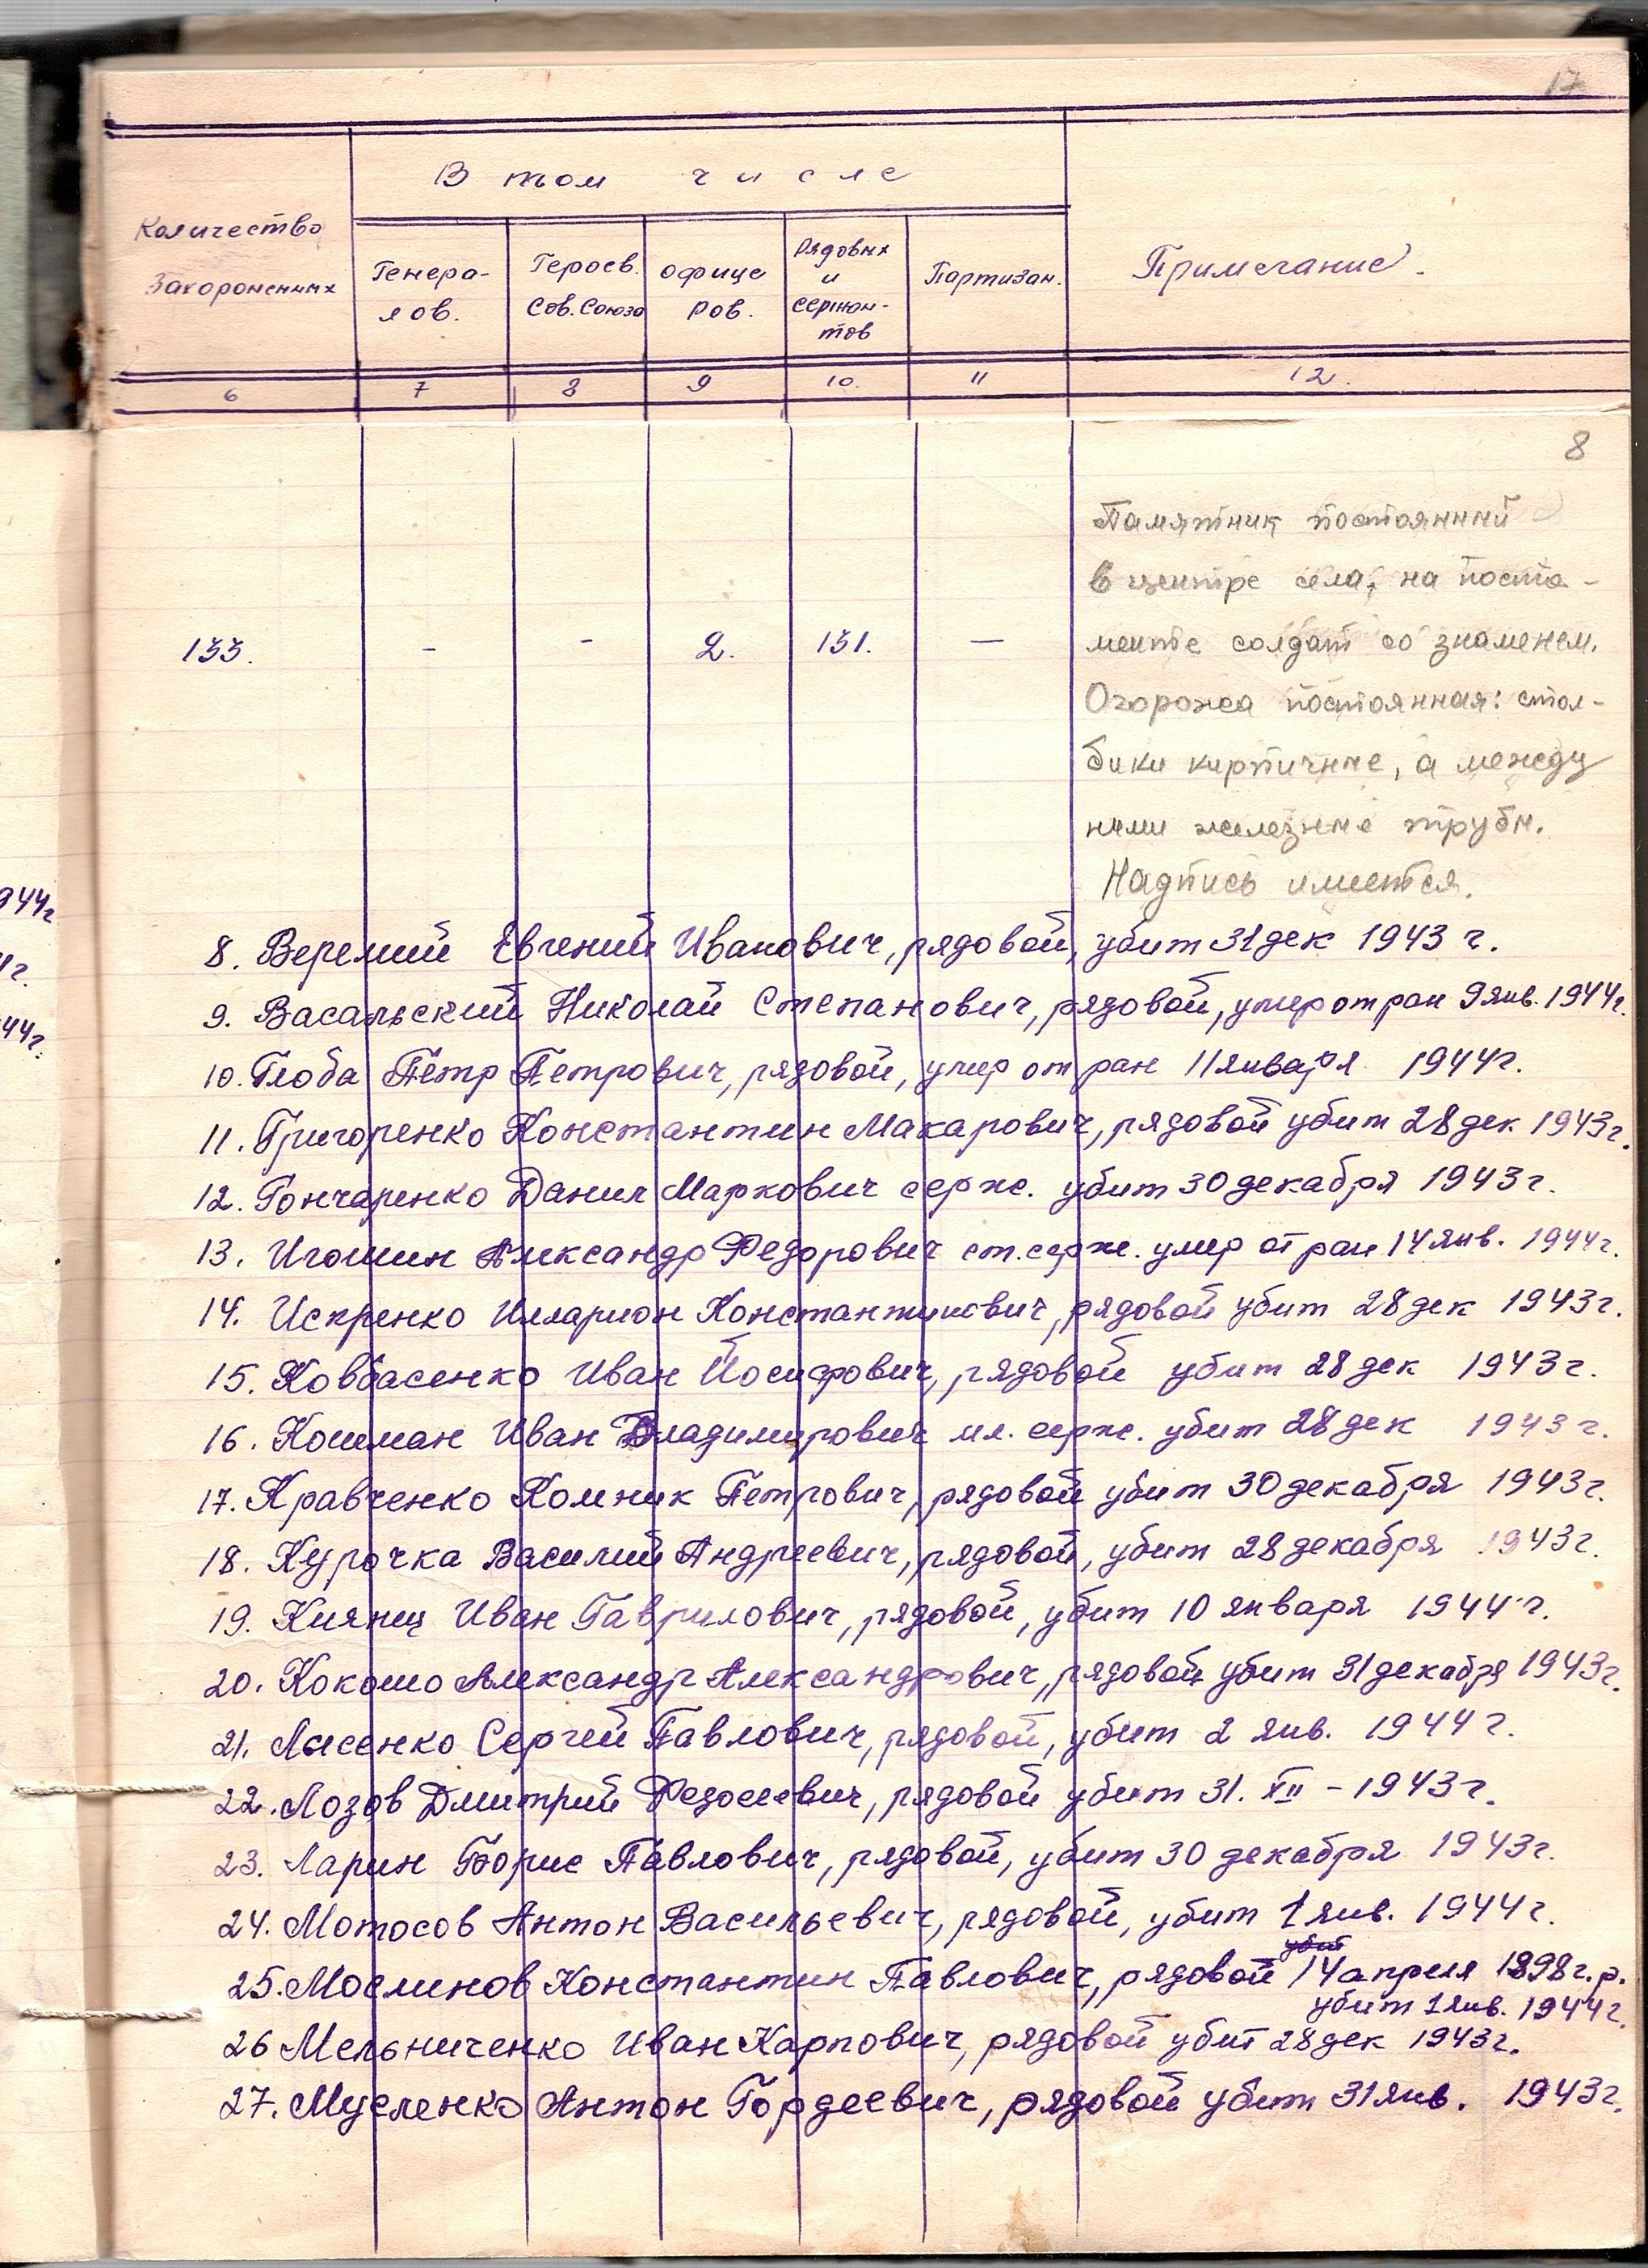 17
В том числе
Количество
Захороненных
Генера-
лов.
Героев.
Сов. Союза
офице
ров.
Рядовых
и
сержан-
тов
Партизан.
Примечание.
6 7 8 9 10. 11 12.
8
Памятник постоянный
в центре села, на поста-
менте солдат со знаменем.
Огорожа постоянная: стол-
бики кирпичные, а между
ними железные трубы.
Надпись имеется.
133. - - 2. 131. —
944г
г.
44г.
8. Веремий Евгений Иванович, рядовой, убит 31 дек 1943 г.
9. Васальский Николай Степанович, рядовой, умер от ран 9 янв. 1944г.
10. Глоба Пётр Петрович, рядовой, умер от ран 11 января 1944г.
11. Григоренко Константин Макарович, рядовой убит 28 дек 1943г.
12. Гончаренко Данил Маркович серж. убит 30 декабря 1943г.
13. Игошин Александр Федорович ст. серж. умер от ран 14 янв. 1944г.
14. Искренко Илларион Константинович, рядовой убит 28 дек 1943г.
15. Ковбасенко Иван Йосифович, рядовой убит 28 дек 1943г.
16. Кошман Иван Владимирович мл. серж. убит 28 дек 1943г.
17. Кравченко Комник Петрович, рядовой убит 30 декабря 1943г.
18. Курочка Василий Андреевич, рядовой, убит 28 декабря 1943г.
19. Киянец Иван Гаврилович, рядовой, убит 10 января 1944г.
20. Кокошо Александр Александрович, рядовой убит 31 декабря 1943г.
21. Лысенко Сергей Павлович, рядовой, убит 2 янв. 1944г.
22. Лозов Дмитрий Федосеевич, рядовой убит 31. XII - 1943г.
23. Ларин Борис Павлович, рядовой, убит 30 декабря 1943г.
24. Мотосов Антон Васильевич, рядовой, убит 1 янв. 1944г.
убит
25. Мослинов Константин Павлович, рядовой 14 апреля 1898г.р.
убит 1 янв. 1944г.
26 Мельниченко Иван Карпович, рядовой убит 28 дек 1943г.
27. Мусленко Антон Гордеевич, рядовой убит 31 янв. 1943г.